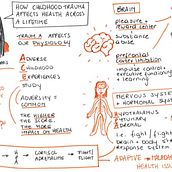 HOW CHILDHOOD TRAUMA
AFFECTS HEALTH ACROSS
A LIFETIME
TRAUMA AFFECTS
OUR PHYSIOLOGY
ADVERSE
CHILDHOOD
EXPERIENCES
STUDY
ADVERSITY =
COMMON
THE HIGHER
THE SCORE,
THE MORE
IMPACT ON HEALTH
CORTISOL
ADRENALINE
FIGHT
FLIGHT
BRAIN
pleasure +
reward center
substance
abuse
prefrontal
cortex inhibition
impulse control +
executive functioning
+ learning
NERVOUS SYSTEM
+ HORMONAL
HYPOTHALAMUS
PITUITARY
ADRENAL
i.e. fight/flight
brain
body
ADAPTIVE
HEALTH